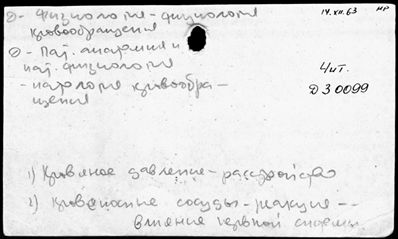 D- Физиология - физиология
кровообращения
D - Пат. анатомия и
пат. физиология
- патология кровообра-
щения
14.XII.63
МР
Чит.
D 30099
1) Кровяное давление - расстройство
2) Кровеносные сосуды - реакция --
влияние нервной системы